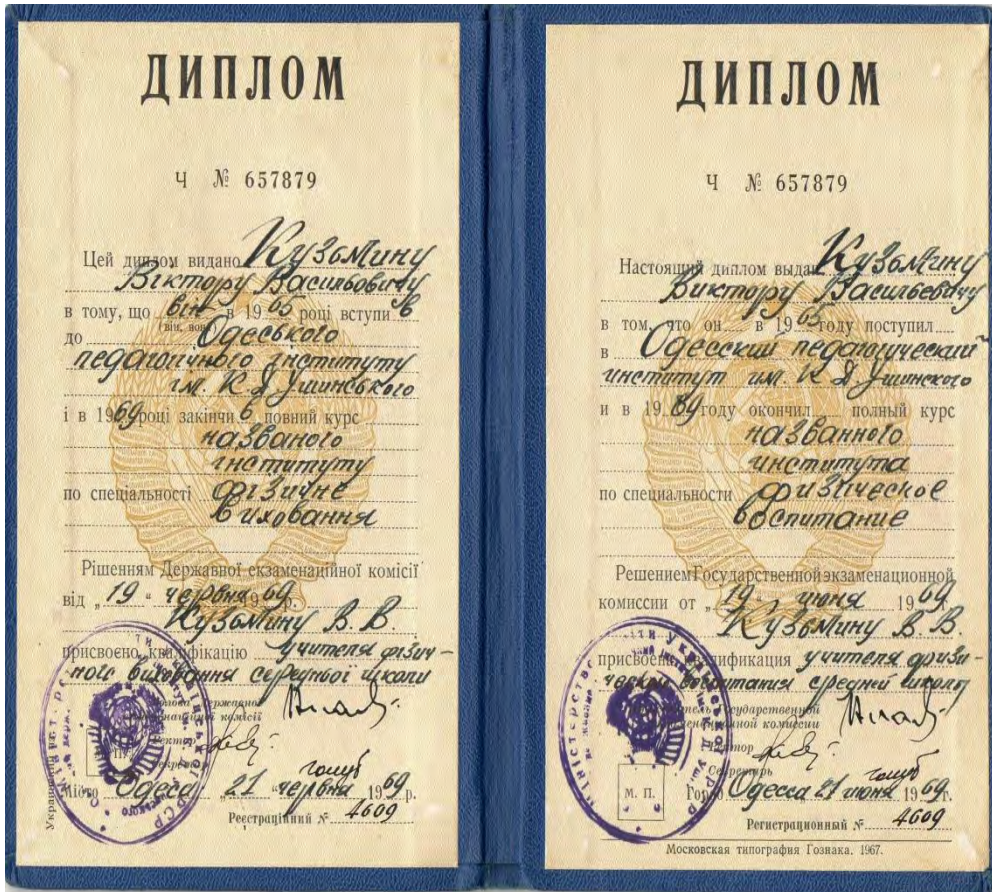 ДИПЛОМ
Ч № 657879
Цей диплом видано Кузьмину
Віктору Васильовичу
в тому, що він в 1965 році вступив
(він, вона)
до Одеського
педагогічного інституту
ім. К Д Ушинського
і в 1969 році закінчив повний курс
названого
інституту
по спеціальності фізичне
виховання
Рішенням Державної екзаменаційної комісії
від „19“ червня 1969 р.
Кузьмину В. В.
присвоєно кваліфікацію учителя фізич-
ного виховання середньої школи
Голова Державної
екзаменаційної комісії
Ректор
Секретар
Місто Одеса „21“ червня 1969 р.
Реєстраційний № 4609
ДИПЛОМ
Ч № 657879
Настоящий диплом выдан Кузьмину
Виктору Васильевичу
в том, что он в 1965 году поступил
в Одесский педагогический
институт им. К Д Ушинского
и в 1969 году окончил полный курс
названного
института
по специальности физическое
воспитание
Решением Государственной экзаменационной
комиссии от „19“ июня 1969 г.
Кузьмину В. В.
присвоена квалификация учителя физи-
ческого воспитания средней школы
Председатель Государственной
экзаменационной комиссии
Ректор
Секретарь
М. П.
Город Одесса 21 июня 1969 г.
Регистрационный № 4609
Московская типография Гознака. 1967.